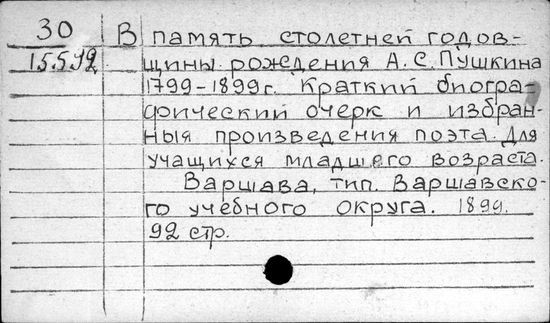 30
15.5.92
В память столетней годов-
щины рождения А.С.Пушкина
1799-1899г. Краткий биогра-
фический очерк и избран-
ныя произведения поэта. Для
учащихся младшего возраста.
Варшава, тип. Варшавско-
го учебного округа. 1899.
92 стр.